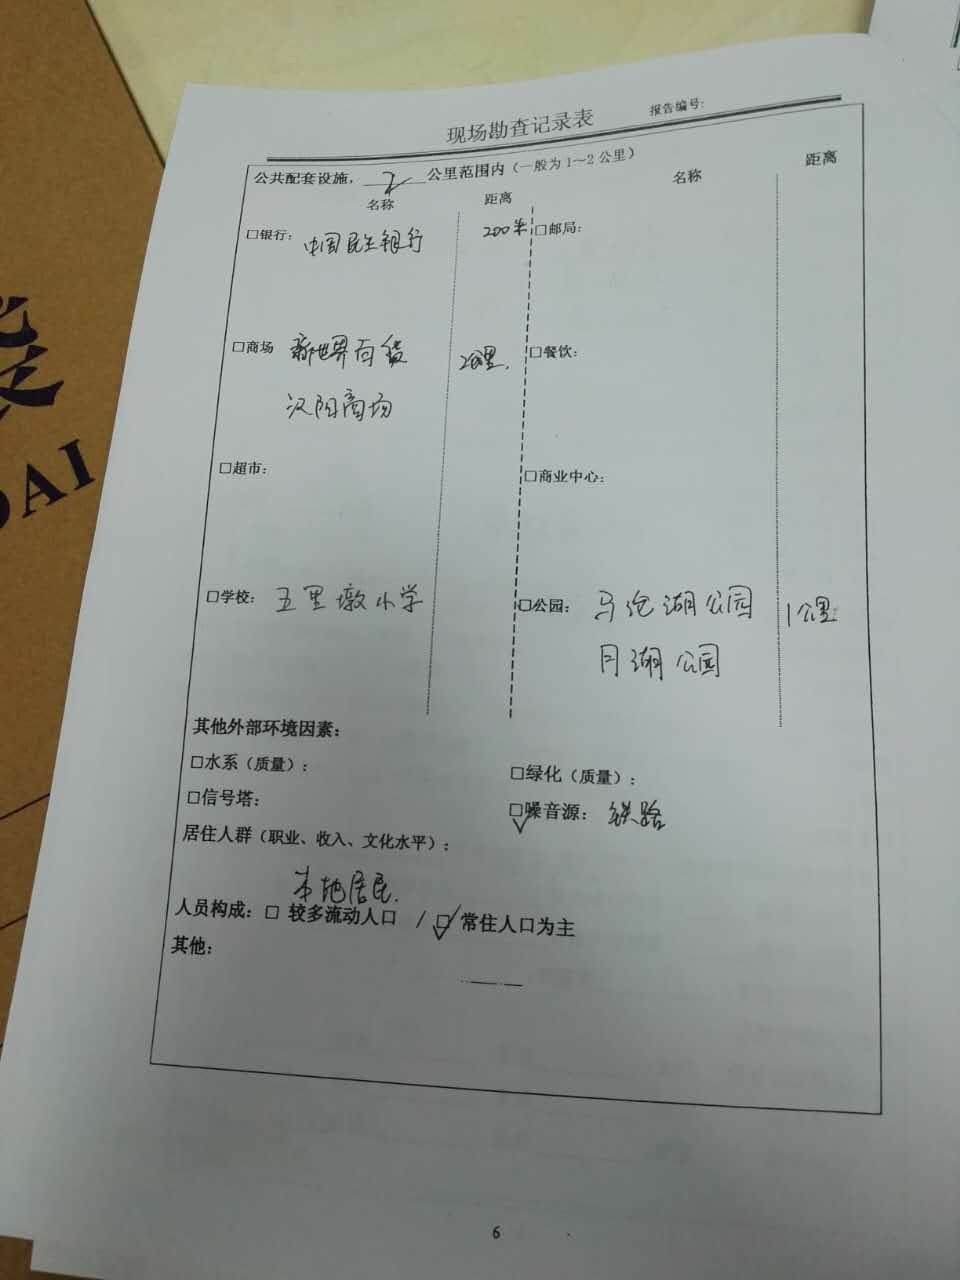 现场勘查记录表 报告编号:
公共配套设施，2公里范围内（一般为1～2公里）
名称 距离 名称 距离
□银行： 中国民生银行 200米 □邮局:
□商场 新世界百货 2公里. □餐饮:
汉阳商场
□超市： □商业中心：
□学校： 五里墩小学 □公园： 马沧湖公园 1公里
月湖公园
其他外部环境因素：
□水系（质量）： □绿化（质量）：
□信号塔： □噪音源： 铁路
居住人群（职业、收入、文化水平）：
本地居民.
人员构成：□ 较多流动人口 / □ 常住人口为主
其他：
6
DAI